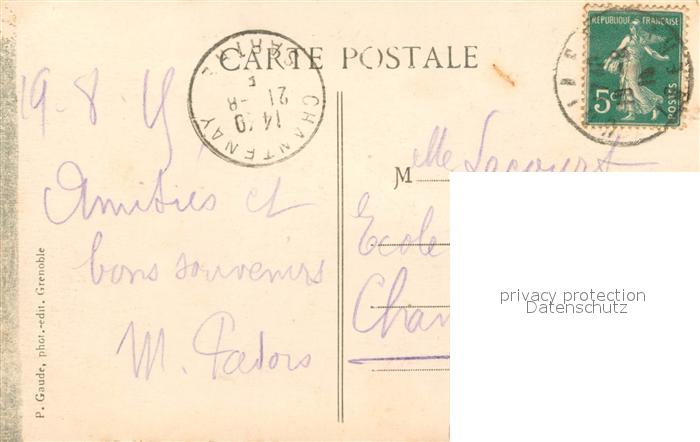 CARTE POSTALE
CHANTENAY
SARTHE
14 10
21 -8
5
RÉPUBLIQUE FRANÇAISE
5c
POSTES
19-8
Amitiés et
bons souvenirs
M.
M
Mlle Lacourt
Ecole
Chan
privacy protection
Datenschutz
P. Gaude, phot.-édit. Grenoble